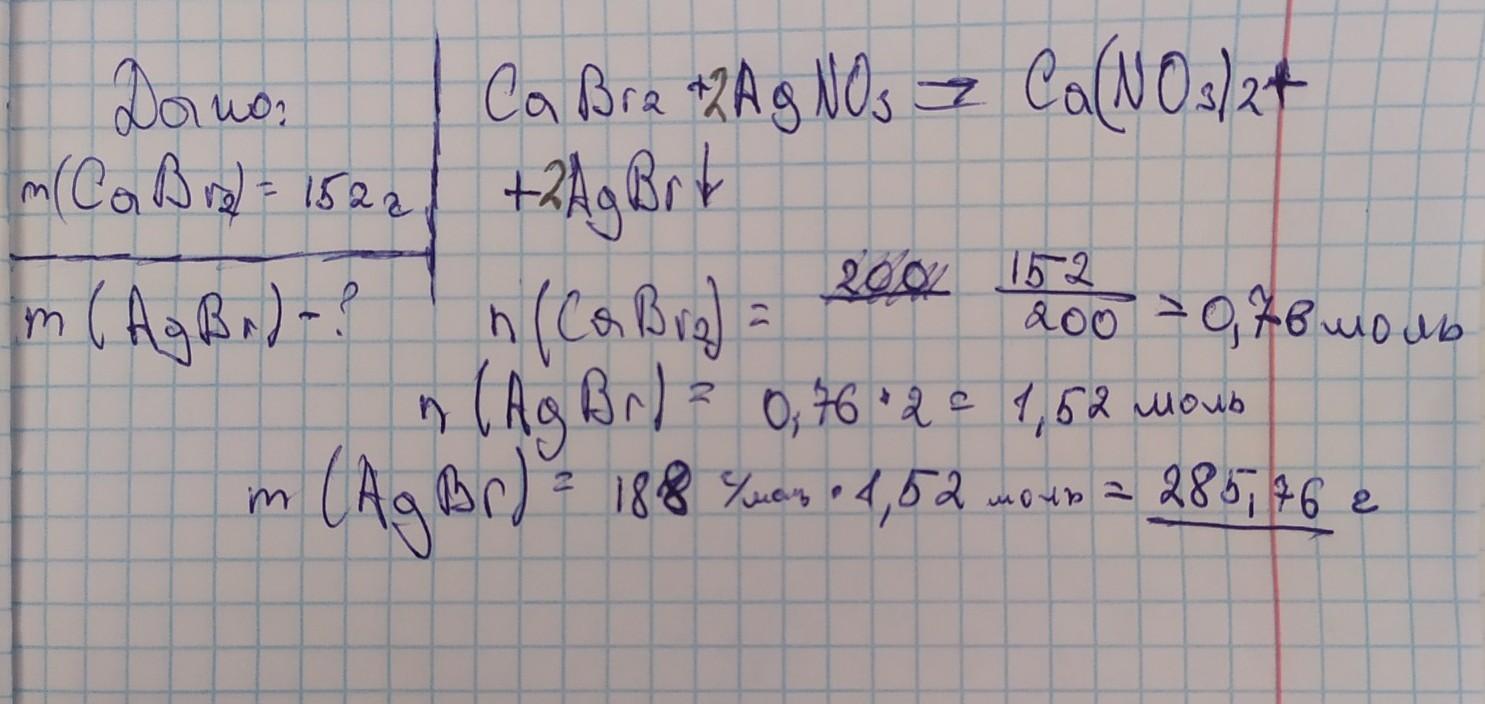 Дано:
m(CaBr2) = 152 г
m(AgBr) - ?
CaBr2 + 2AgNO3 = Ca(NO3)2 +
+ 2AgBr↓
n(CaBr2) = 152/200 = 0,76 моль
n(AgBr) = 0,76 · 2 = 1,52 моль
m(AgBr) = 188 г/моль · 1,52 моль = 285,76 г